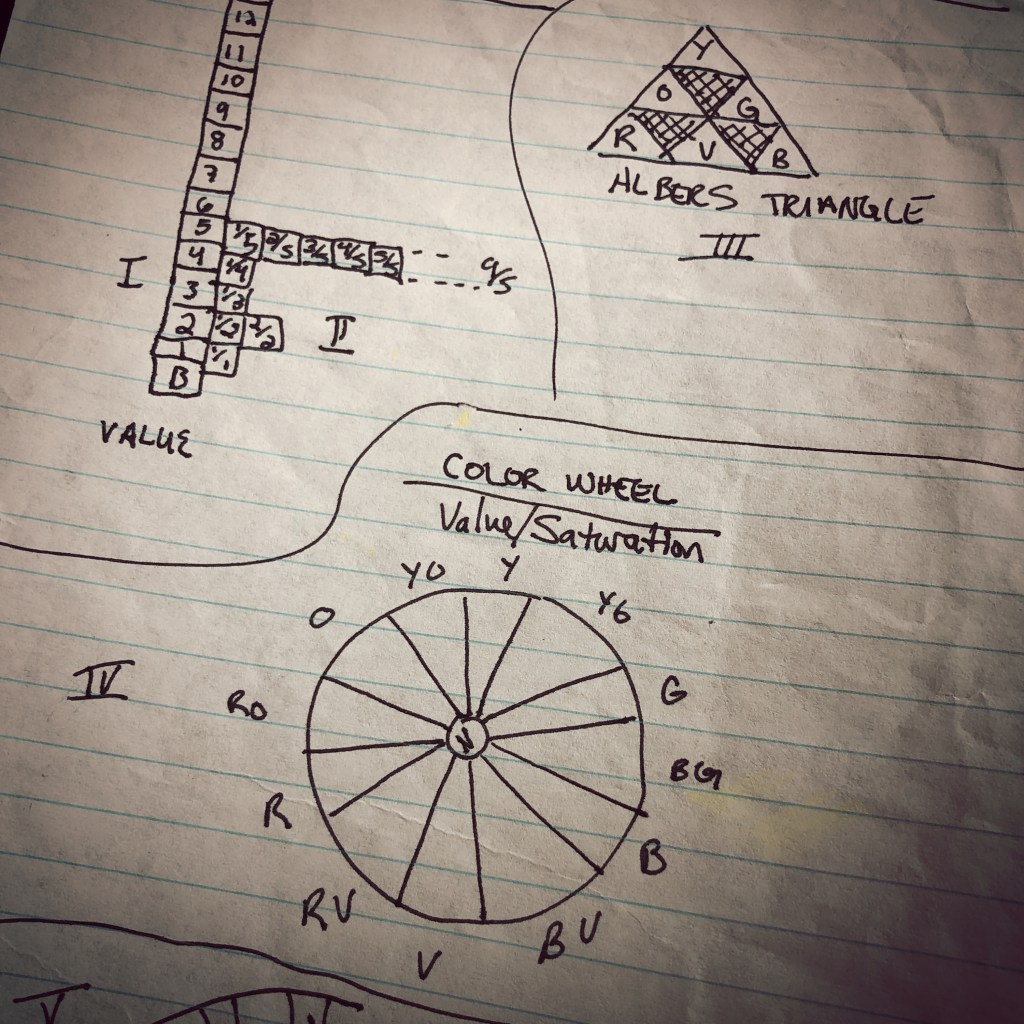 12
11
10
9
8
7
6
5 1/5 2/5 3/5 4/5 5/5 9/5
4 1/4
I
3 1/3
2 1/2 2/2
II
1 1/1
B
VALUE
Y
O G
R V B
ALBERS TRIANGLE
III
COLOR WHEEL
Value/Saturation
YO Y YG
O
IV
RO G
N
BG
R B
RV BU
V
V